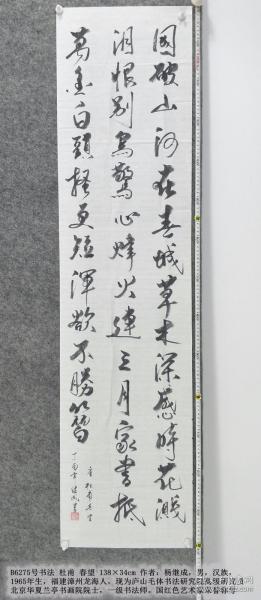 國破山河在春城草木深感時花濺
泪恨别鳥驚心烽火連三月家書抵
萬金白頭搔更短渾欲不勝簪
B6275号书法 杜甫 春望 138×34cm 作者：杨继成，男，汉族，
1965年生，福建漳州龙海人。现为庐山毛体书法研究院高级研究员
北京华夏兰亭书画院院士，一级书法师，国红色艺术家